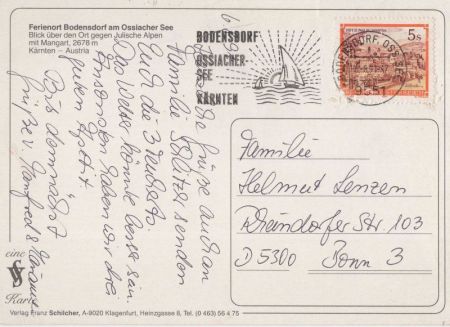 Ferienort Bodensdorf am Ossiacher See
Blick über den Ort gegen Julische Alpen
mit Mangart, 2678 m
Kärnten – Austria
BODENSDORF
OSSIACHER-
SEE
KÄRNTEN
5 S
9551
Grüße
Familie senden
Euch die 3
Das Wetter könnte besser sein
Ansonsten haben wir drei
guten Spaß.
Bis demnächst
Manfred &
Familie
Helmut Lenzen
Rheindorfer Str 103
D 5300 Bonn 3
eine
Karte
Verlag Franz Schilcher, A-9020 Klagenfurt, Heinzgasse 8, Tel. (0 463) 56 4 75